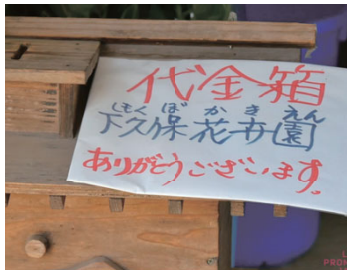 代金箱
しもくぼかきえん
下久保花卉園
ありがとうございます。
L
PRON